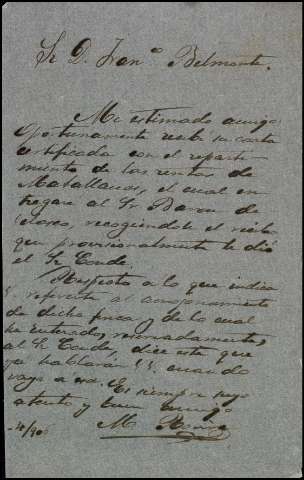 Sr. D. Franco Belmonte.
Mi estimado amigo:
Oportunamente recibi su carta
certificada con el reparti-
miento de las rentas de
Matallanos, el cual en-
tregaré al Sr Baron de
recogiendole el recibo
que provisionalmente le dió
el Sr Conde.
Respecto a lo que indica
V. referente al amojonamiento
de dicha finca y de lo cual
he enterado reservadamente
al Sr Conde, dice este que
ya hablaran VV. cuando
vaya a esa. Es siempre suyo
atento y buen amigo
M.